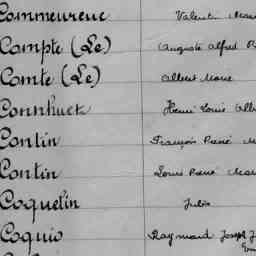 Commeureuc Valentin Marie
Compte (Le) Auguste Alfred
Comte (Le) Albert Marie
Connhuck Henri Louis
Contin François René
Contin Louis René
Coquelin Jules
Coquio Raymond Joseph